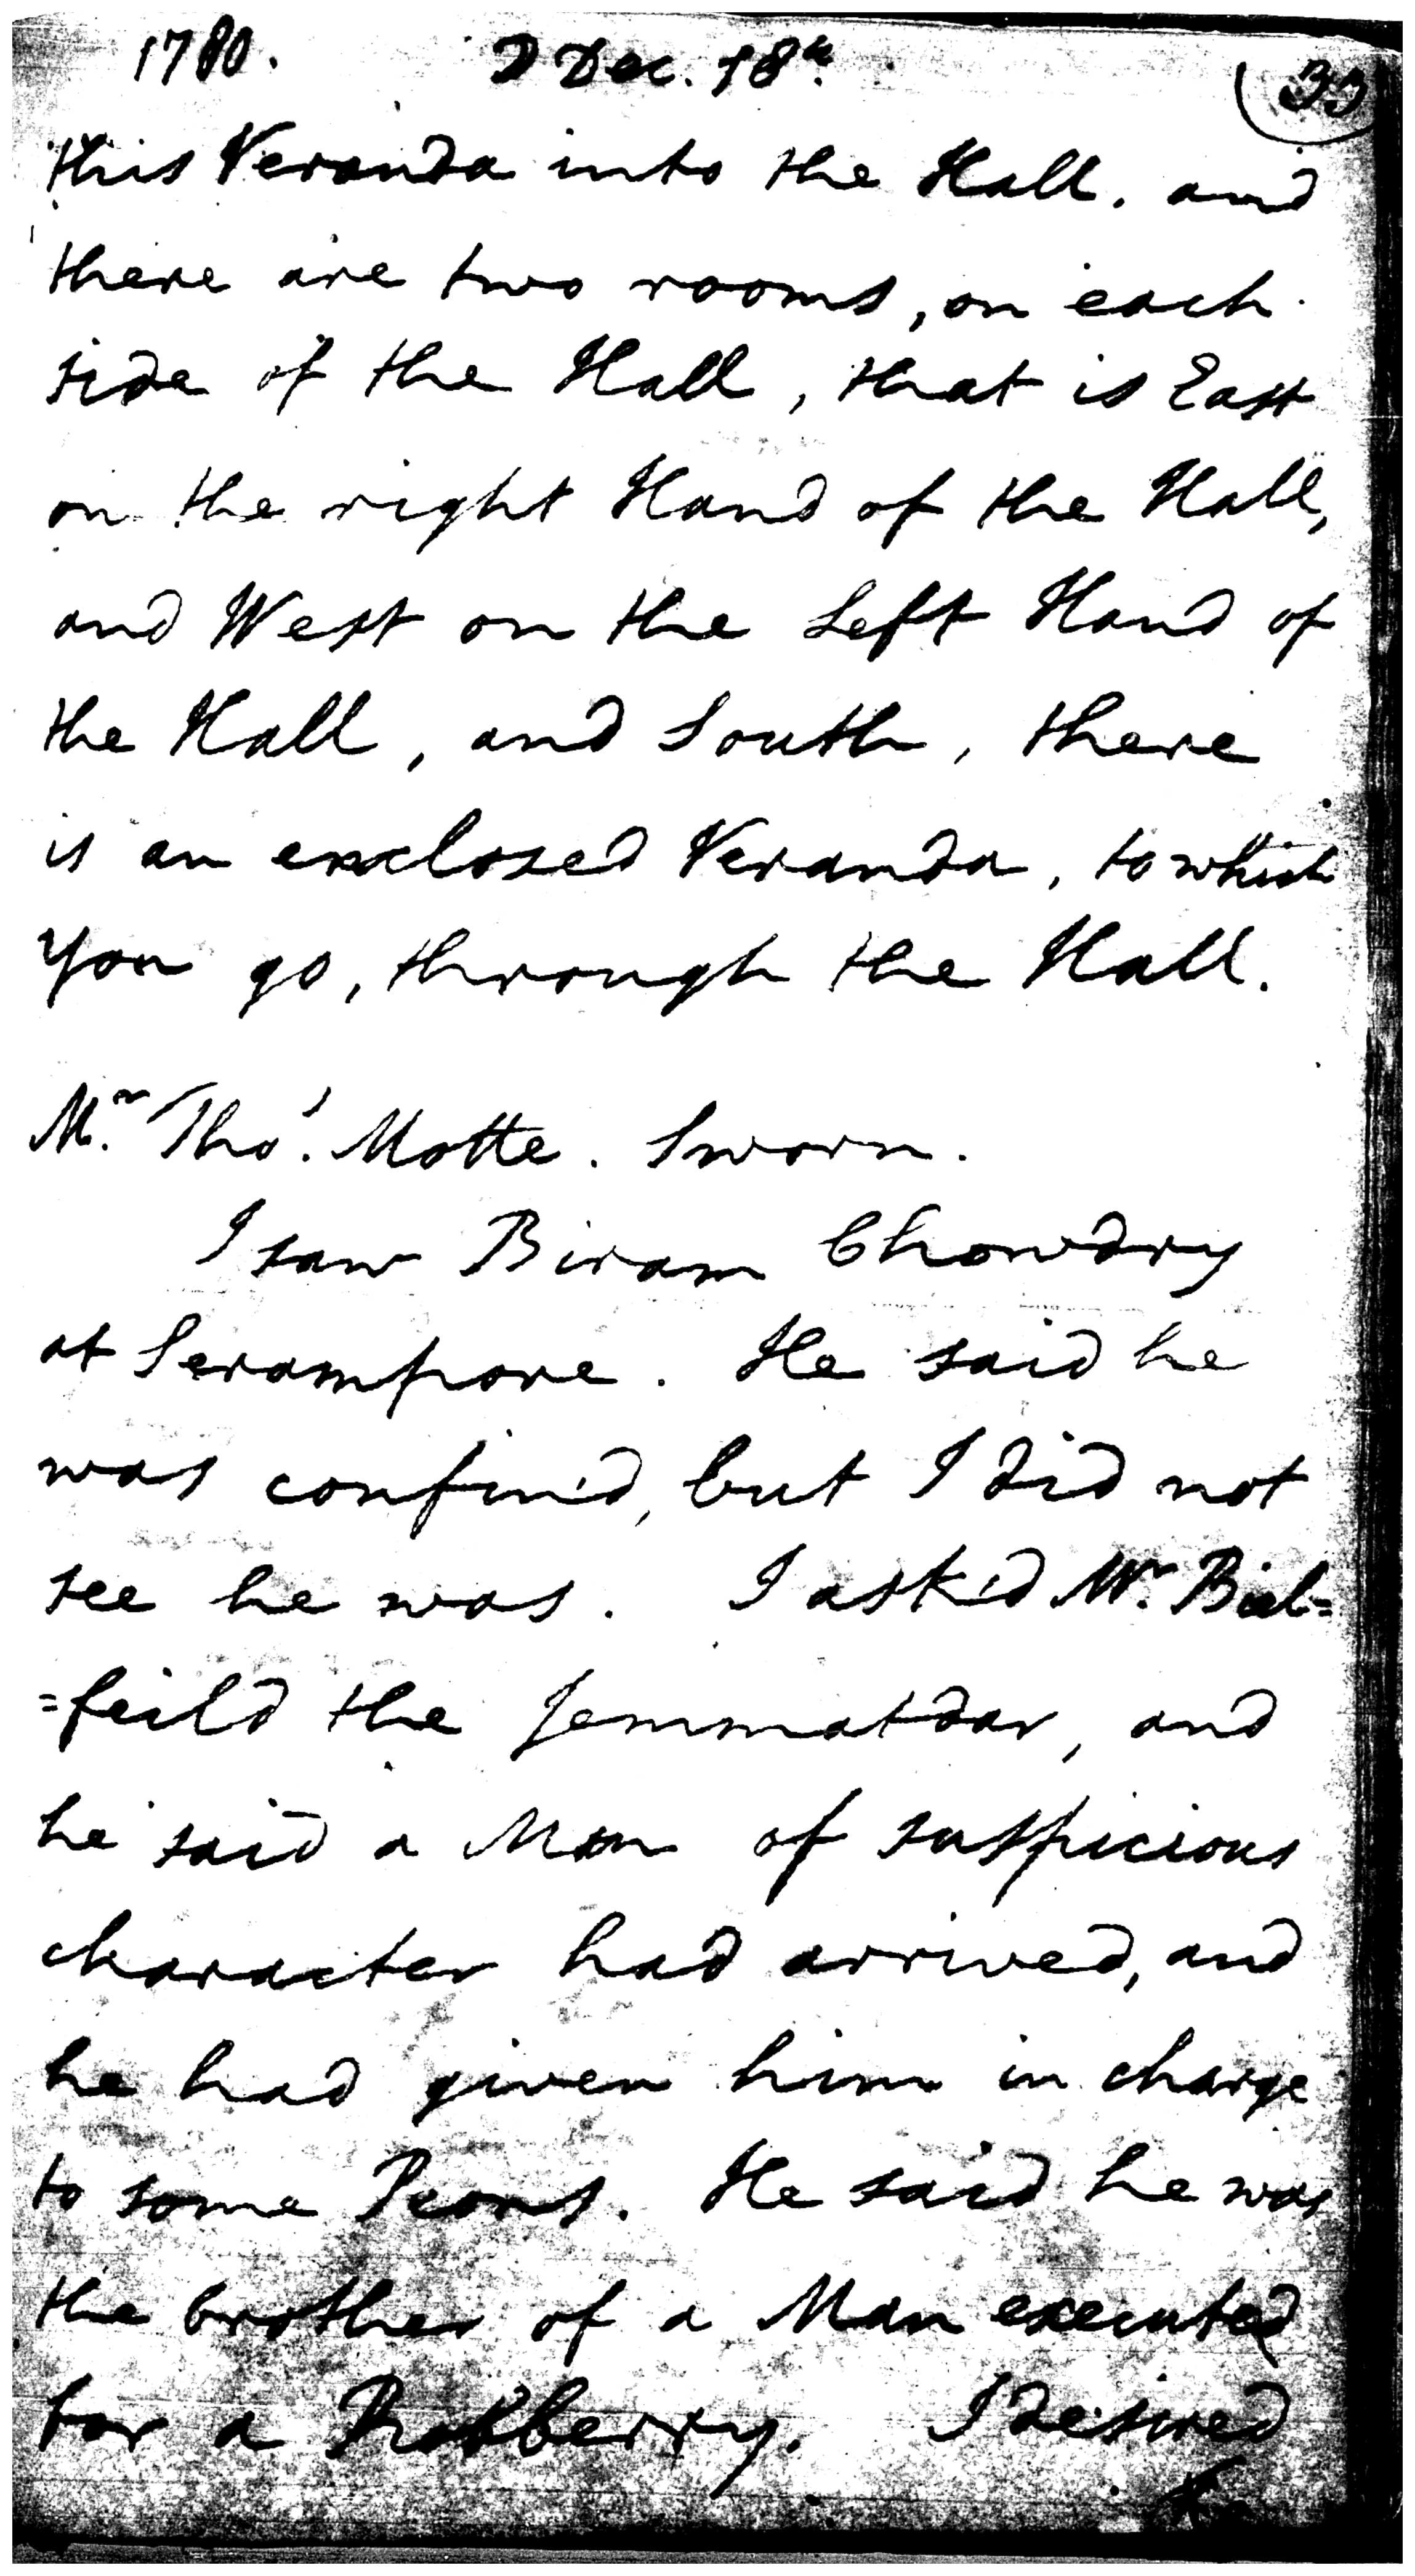 1780. Dec. 18th.
this Veranda into the Hall. and
there are two rooms, on each
side of the Hall, that is East
on the right Hand of the Hall,
and West on the Left Hand of
the Hall, and South, there
is an enclosed Veranda, to which
you go, through the Hall.
Mr. Thos. Motte. Sworn.
I saw Biram Chowdry
at Serampore. He said he
was confin'd, but I did not
see he was. I ask'd Mr. Biel=
=feild the Jemmatdar, and
he said a Man of suspicious
character had arrived, and
he had given him in charge
to some Peons. He said he was
the brother of a Man executed
for a Robberry. I desired